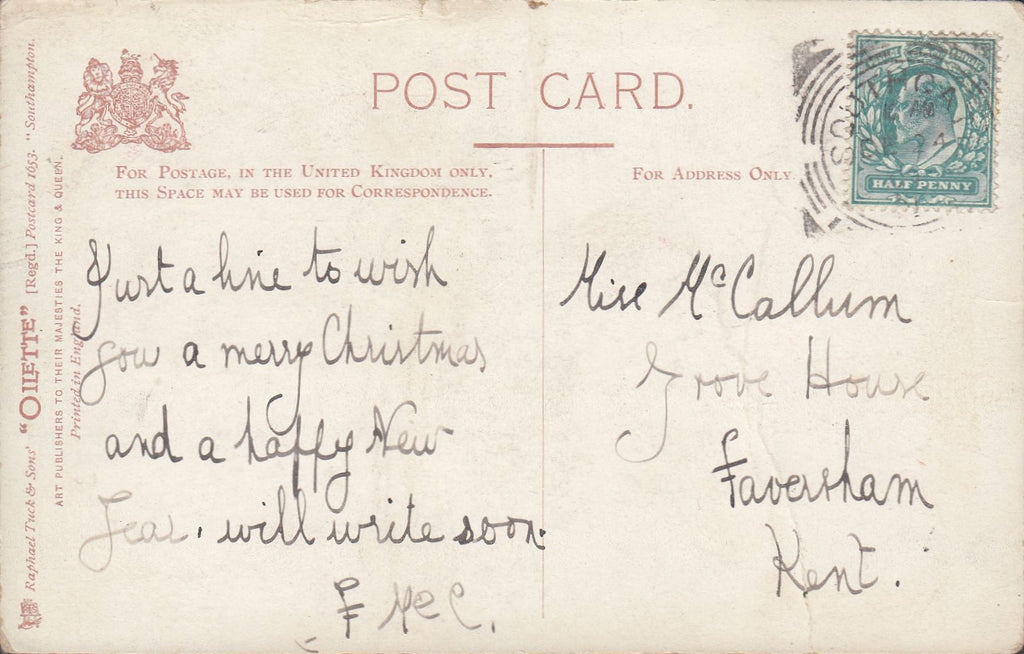 POST CARD.
FOR POSTAGE, IN THE UNITED KINGDOM ONLY,
THIS SPACE MAY BE USED FOR CORRESPONDENCE.
FOR ADDRESS ONLY.
HALF PENNY
Just a line to wish
you a merry Christmas
and a happy New
Year. will write soon.
F McC.
Miss McCallum
Grove House
Faversham
Kent.
Raphael Tuck & Sons' "OILETTE" [Regd.] Postcard 1653. "Southampton.
ART PUBLISHERS TO THEIR MAJESTIES THE KING & QUEEN.
Printed in England.